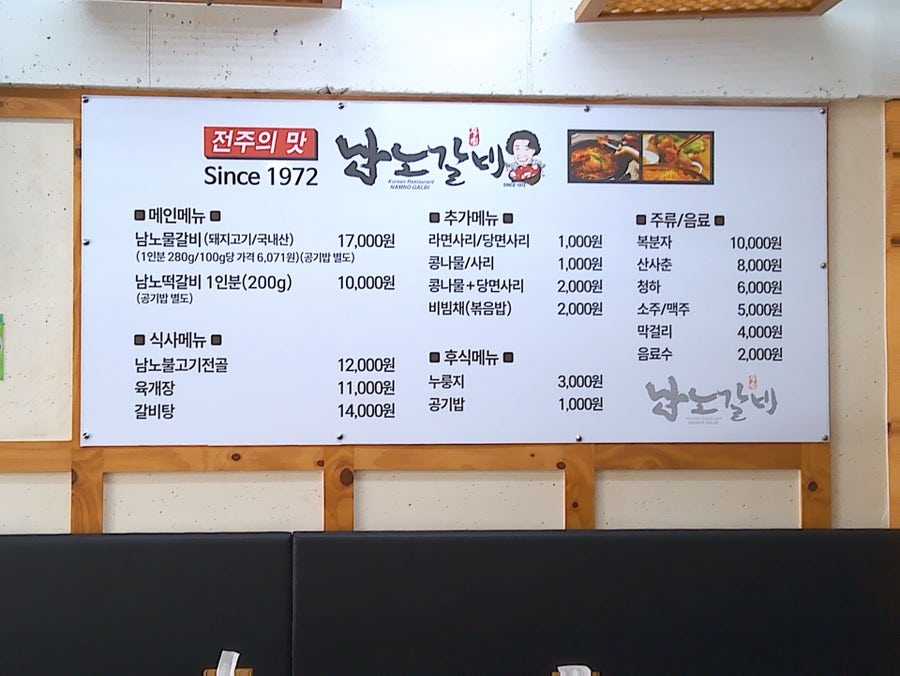 전주의 맛
Since 1972
남노갈비
Korean Restaurant
NAMNO GALBI
SINCE 1972
■ 메인메뉴 ■
남노물갈비 (돼지고기/국내산) 17,000원
(1인분 280g/100g당 가격 6,071원)(공기밥 별도)
남노떡갈비 1인분(200g) 10,000원
(공기밥 별도)
■ 식사메뉴 ■
남노불고기전골 12,000원
육개장 11,000원
갈비탕 14,000원
■ 추가메뉴 ■
라면사리/당면사리 1,000원
콩나물/사리 1,000원
콩나물+당면사리 2,000원
비빔채(볶음밥) 2,000원
■ 후식메뉴 ■
누룽지 3,000원
공기밥 1,000원
■ 주류/음료 ■
복분자 10,000원
산사춘 8,000원
청하 6,000원
소주/맥주 5,000원
막걸리 4,000원
음료수 2,000원
남노갈비
NAMNO GALBI